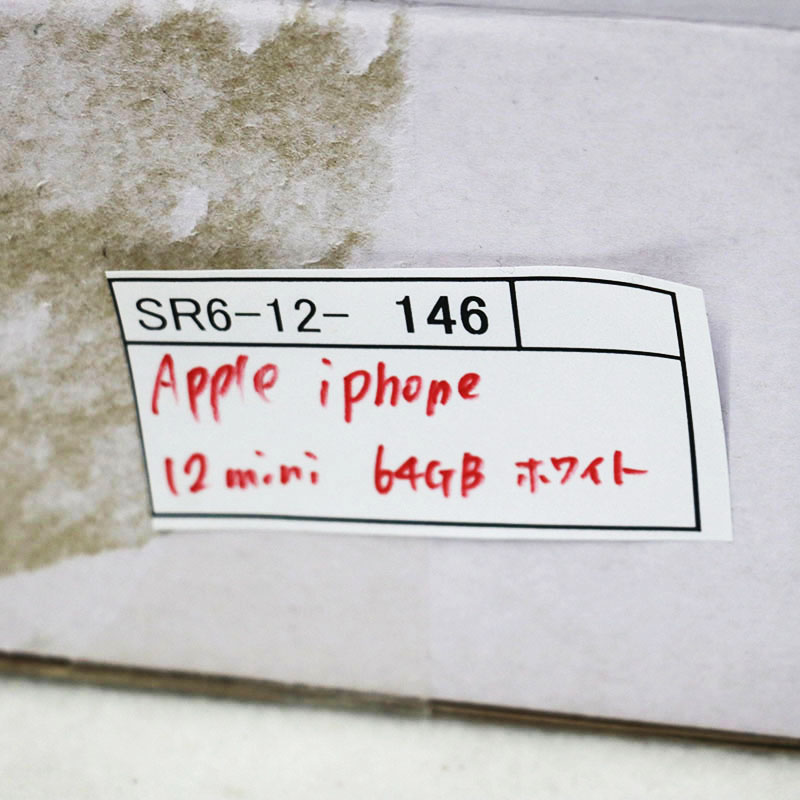 SR6-12- 146
Apple iphone
12 mini 64GB ホワイト